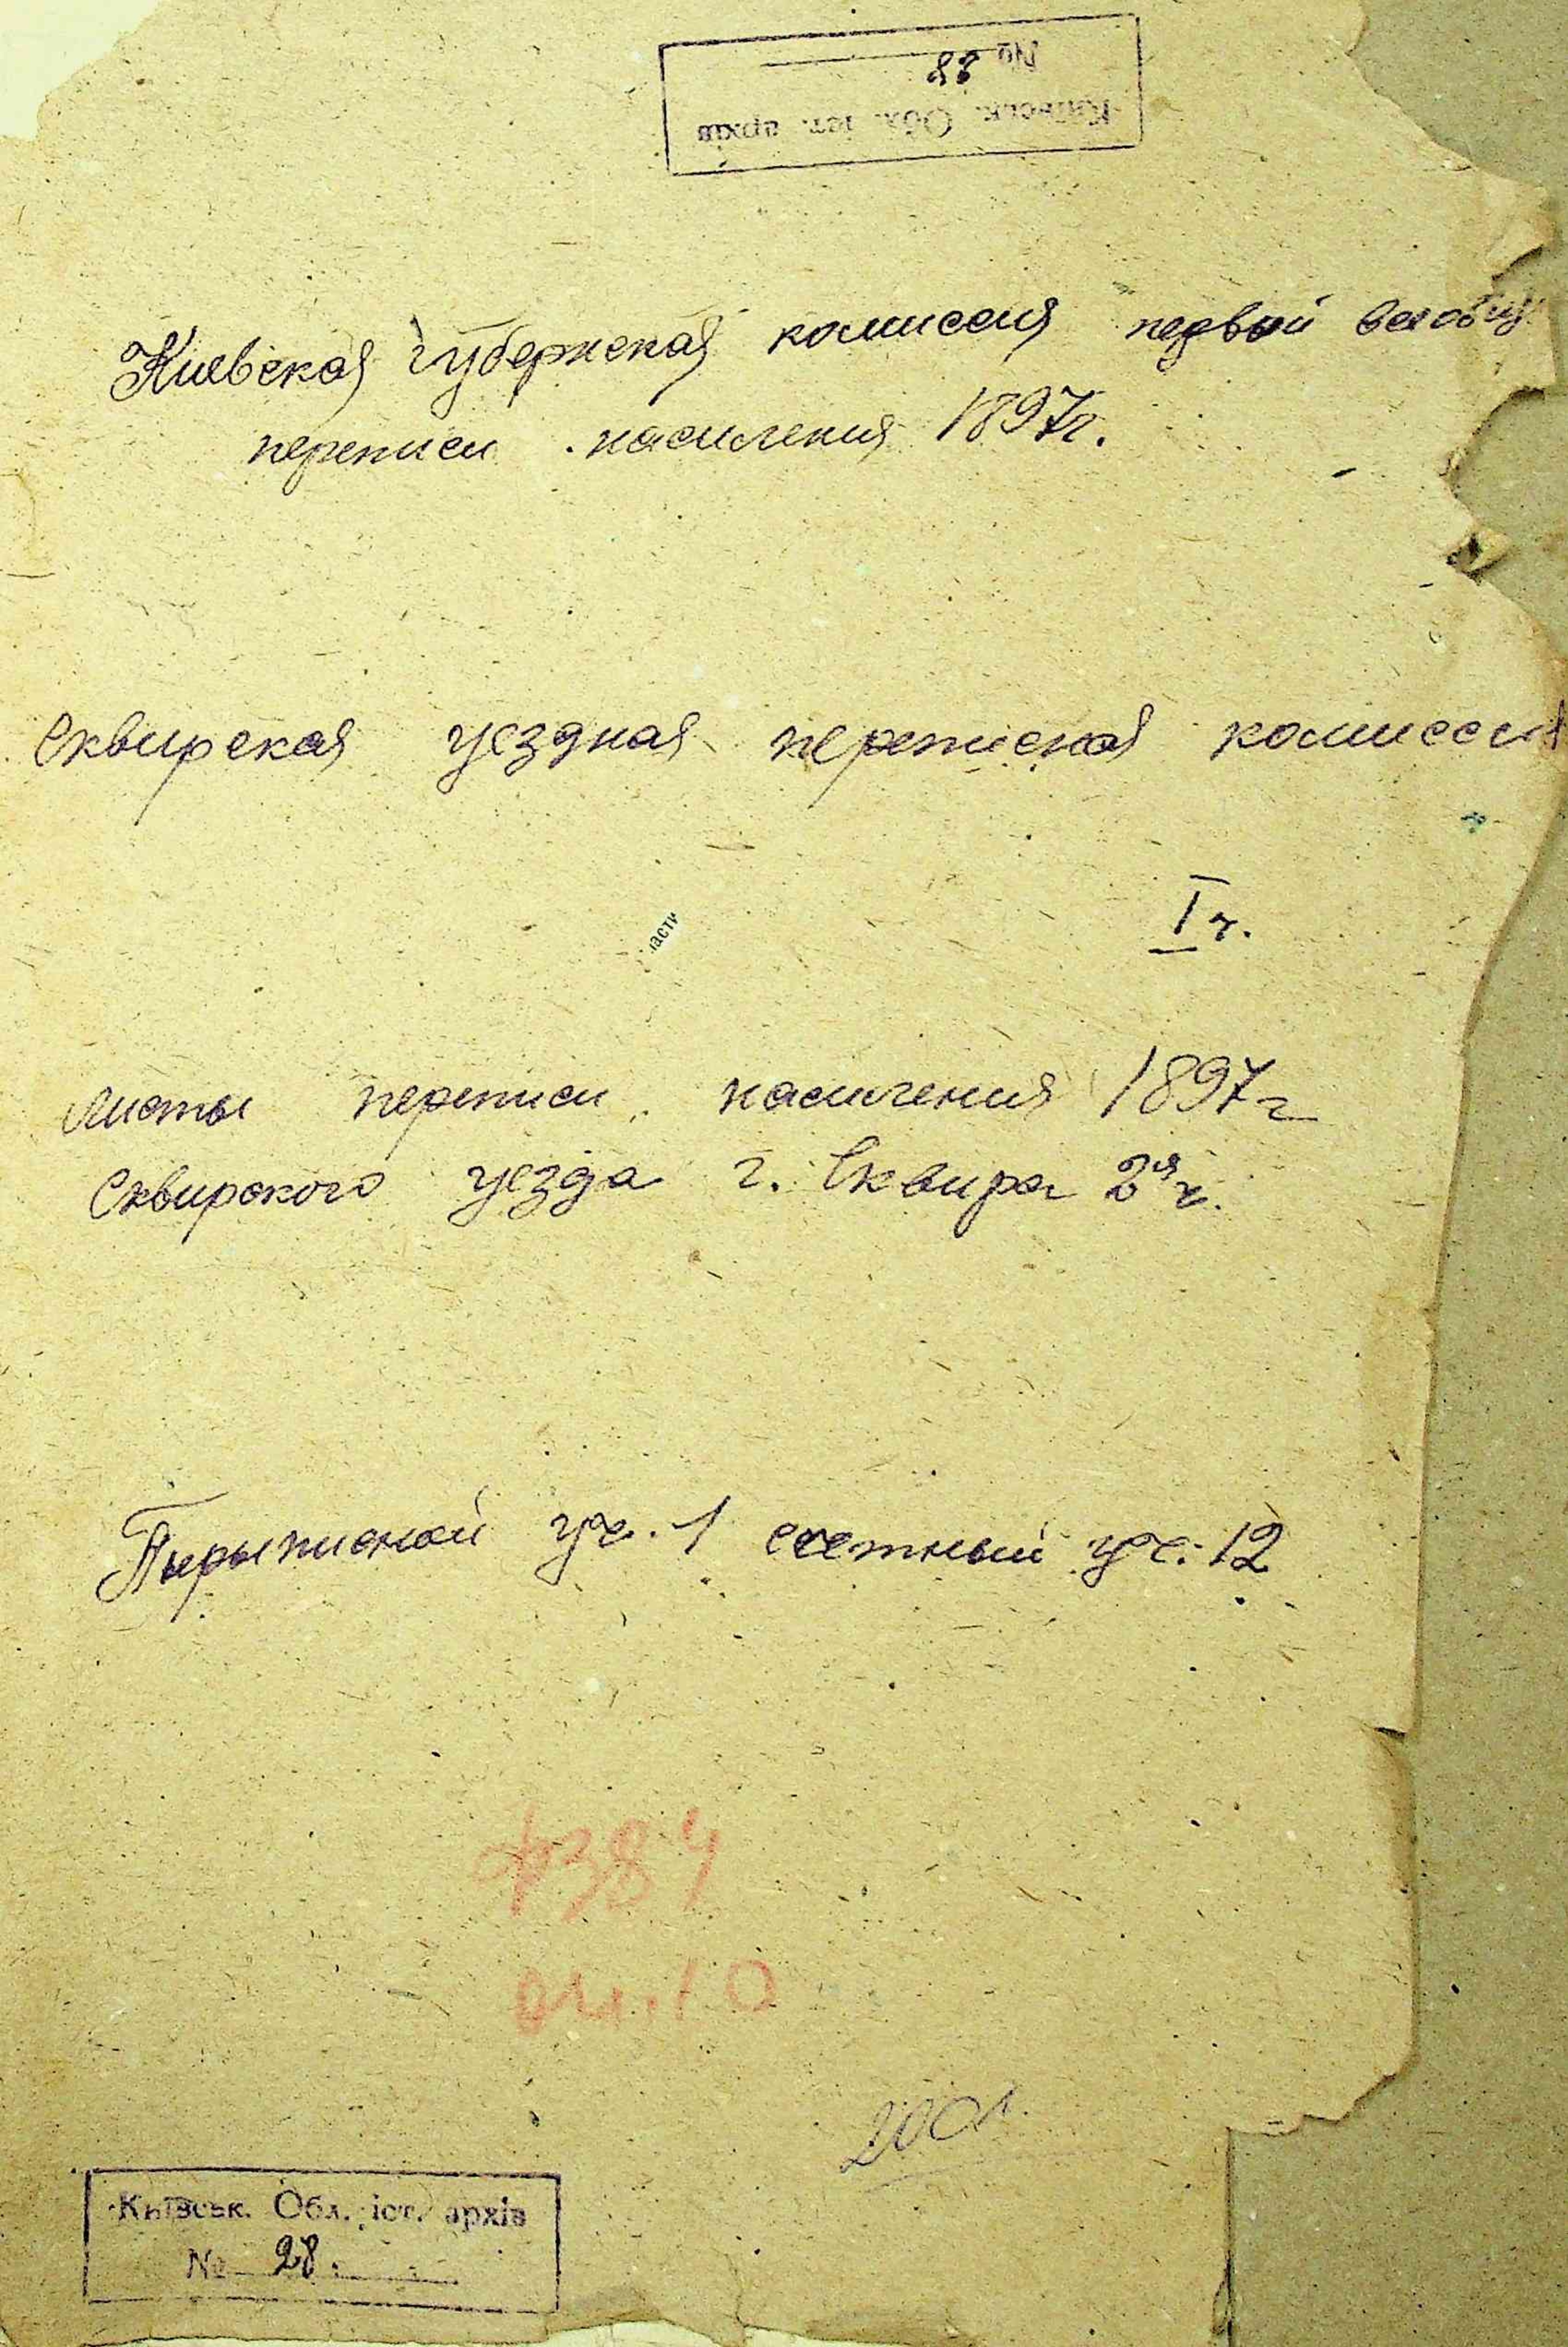 № 28
Київськ. Обл. іст. архів
Киевская губернская комиссия первой всеобщ.
переписи населения 1897г.
Сквирская уездная переписная комиссия
I ч.
части
листы переписи населения 1897г
Сквирского уезда г. Сквира 2я ч.
Пырыписной уч. 1 счетный уч. 12
ф384
оп.10
200л.
Київськ. Обл. іст. архів
№ 28.